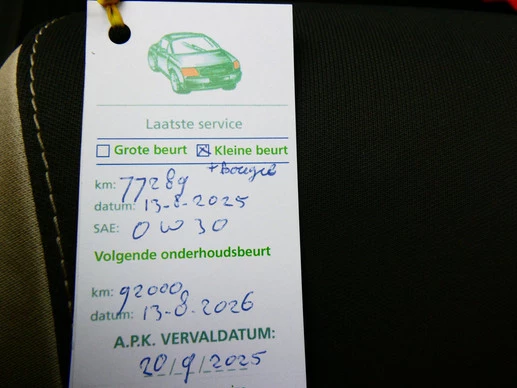 Laatste service
Grote beurt Kleine beurt
+ Bougie
km: 77289
datum: 13-8-2025
SAE: 0W30
Volgende onderhoudsbeurt
km: 92000
datum: 13-8-2026
A.P.K. VERVALDATUM:
20/9/2025